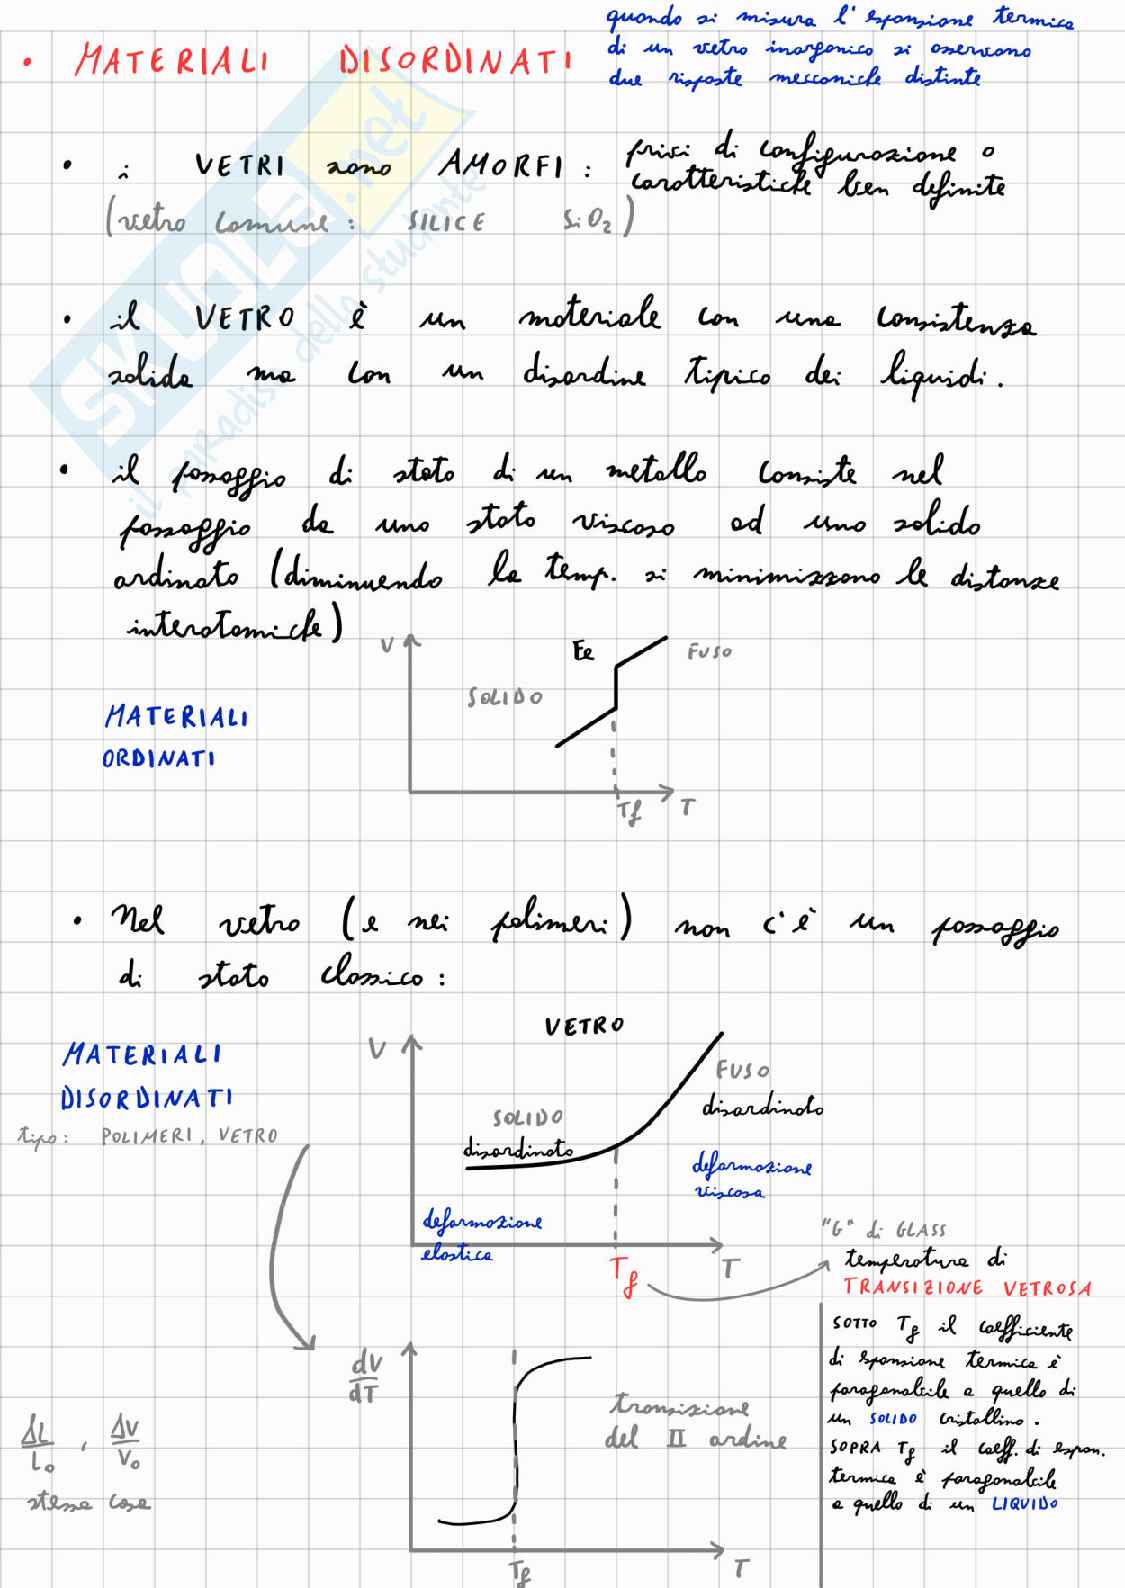 • MATERIALI DISORDINATI
quando si misura l'espansione termica
di un vetro inorganico si osservano
due risposte meccaniche distinte
• i VETRI sono AMORFI : privi di configurazione o
caratteristiche ben definite
(vetro comune : SILICE SiO2)
• il VETRO è un materiale con una consistenza
solida ma con un disordine tipico dei liquidi.
• il passaggio di stato di un metallo consiste nel
passaggio da uno stato viscoso ad uno solido
ordinato (diminuendo la temp. si minimizzano le distanze
interatomiche)
V
Fe
FUSO
SOLIDO
MATERIALI
ORDINATI
Tf
T
• Nel vetro (e nei polimeri) non c'è un passaggio
di stato classico :
VETRO
MATERIALI
DISORDINATI
tipo : POLIMERI, VETRO
V
FUSO
disordinato
SOLIDO
disordinato
deformazione
viscosa
deformazione
elastica
Tg
T
"G" di GLASS
temperatura di
TRANSIZIONE VETROSA
SOTTO Tg il coefficiente
di espansione termica è
paragonabile a quello di
un SOLIDO cristallino.
SOPRA Tg il coeff. di espan.
termica è paragonabile
a quello di un LIQUIDO
dV/dT
transizione
del II ordine
ΔL/L0 , ΔV/V0
stessa cosa
Tg
T
SKUOLA.net
il paradiso dello studente